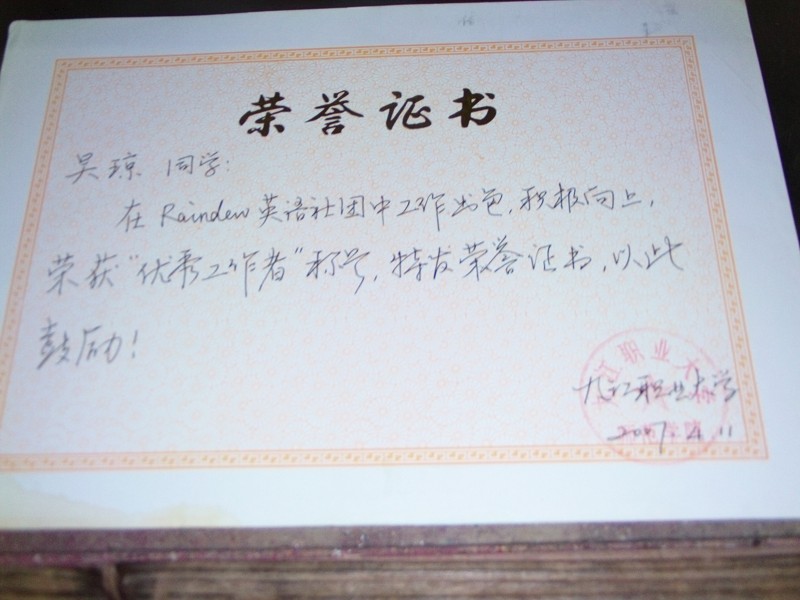 荣誉证书
吴琼 同学:
在Raindew英语社团中工作出色,积极向上,
荣获“优秀工作者”称号,特发荣誉证书,以此
鼓励!
九江职业大学
九江职业大学
2007.4.11